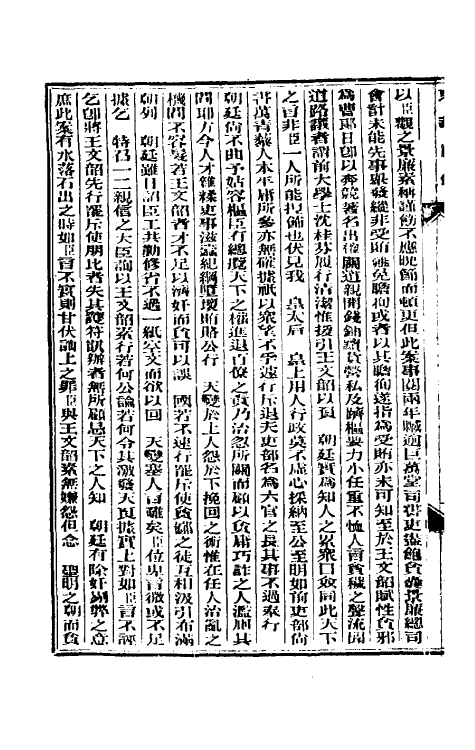 以臣觀之景廉素稱謹飭不應晚節而頓更但此案事閱兩年贓逾巨萬堂司書吏盡飽貪囊景廉總司
會計未能先事舉發縱非受賄難免瞻徇或者以其瞻徇遂指為受賄亦未可知至於王文韶賦性貪邪
為曹郎日卽以奔競著名出僚關道親開錢鋪黷貨營私及躋樞要力小任重不恤人言貪穢之聲流聞
道路議者謂前大學士沈桂芬履行清潔惟援引王文韶以負　朝廷實為知人之累眾口僉同此天下
之言非臣一人所能捏飾也伏見我　皇太后　皇上用人行政莫不虛心採納至公至明如前吏部尚
書萬青藜人本平庸所參亦無確據祇以眾望不孚速行斥退夫吏部名為六官之長其事不過奉行
朝廷尚不曲予姑容樞臣有總攬天下之權進退百僚之責乃治忽所關而顧以貪庸巧詐之人濫廁其
間耶方今人才雜糅吏事滋蠹紀綱墮壞賄賂公行　天變於上人怨於下挽回之術惟在任人治亂之
機間不容髮若王文韶者才不足以濟奸而貪可以誤　國若不速行罷斥使貪鄙之徒互相汲引布滿
朝列　朝廷雖日詔臣工共勤修省不過一紙空文而欲以回　天變塞人言難矣臣位卑言微或不足
據乞　特召一二親信之大臣詢以王文韶素行若何公論若何令其激發天良據實上對如臣言不誣
乞卽將王文韶先行罷斥使朋比者失其護符訊辦者無所顧忌天下之人知　朝廷有除奸剔弊之意
庶此案有水落石出之時如臣言不實則甘伏訕上之罪臣與王文韶素無嫌怨但念　聖明之朝而負